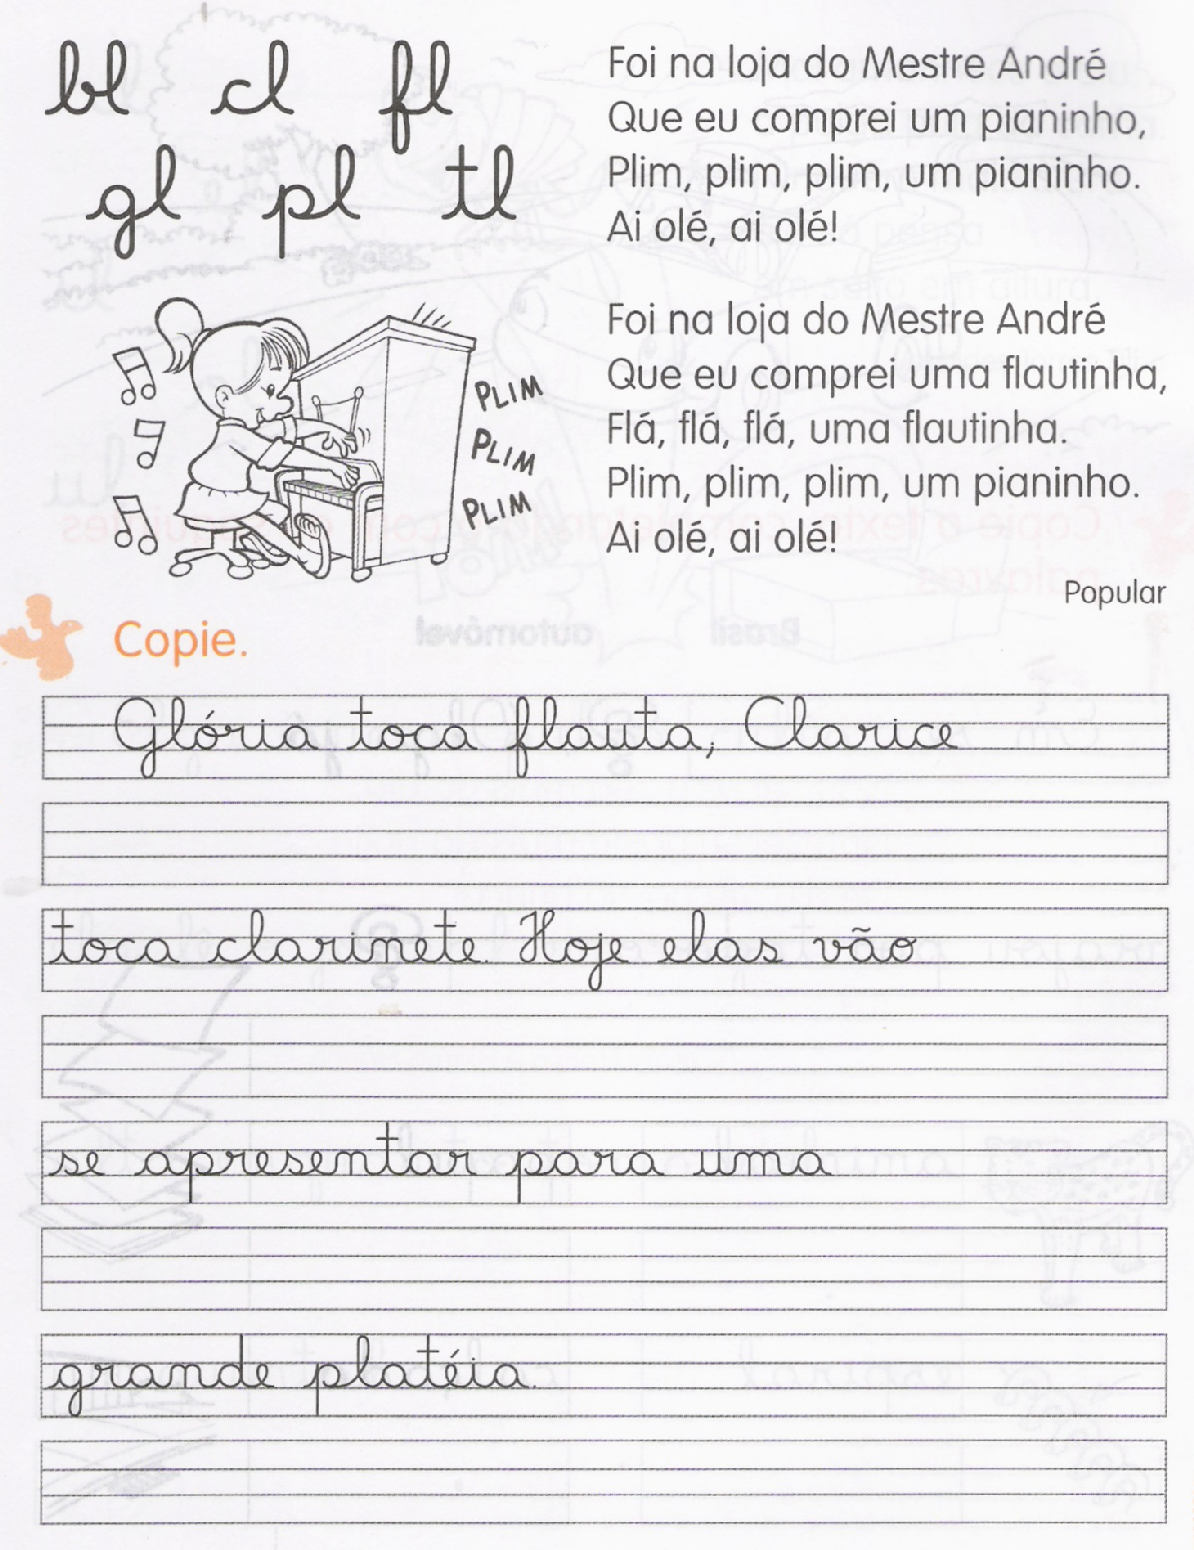 bl cl fl
gl pl tl
Foi na loja do Mestre André
Que eu comprei um pianinho,
Plim, plim, plim, um pianinho.
Ai olé, ai olé!
Foi na loja do Mestre André
Que eu comprei uma flautinha,
Flá, flá, flá, uma flautinha.
Plim, plim, plim, um pianinho.
Ai olé, ai olé!
Popular
PLIM
PLIM
PLIM
Copie.
Glória toca flauta, Clarice
toca clarinete. Hoje elas vão
se apresentar para uma
grande platéia.